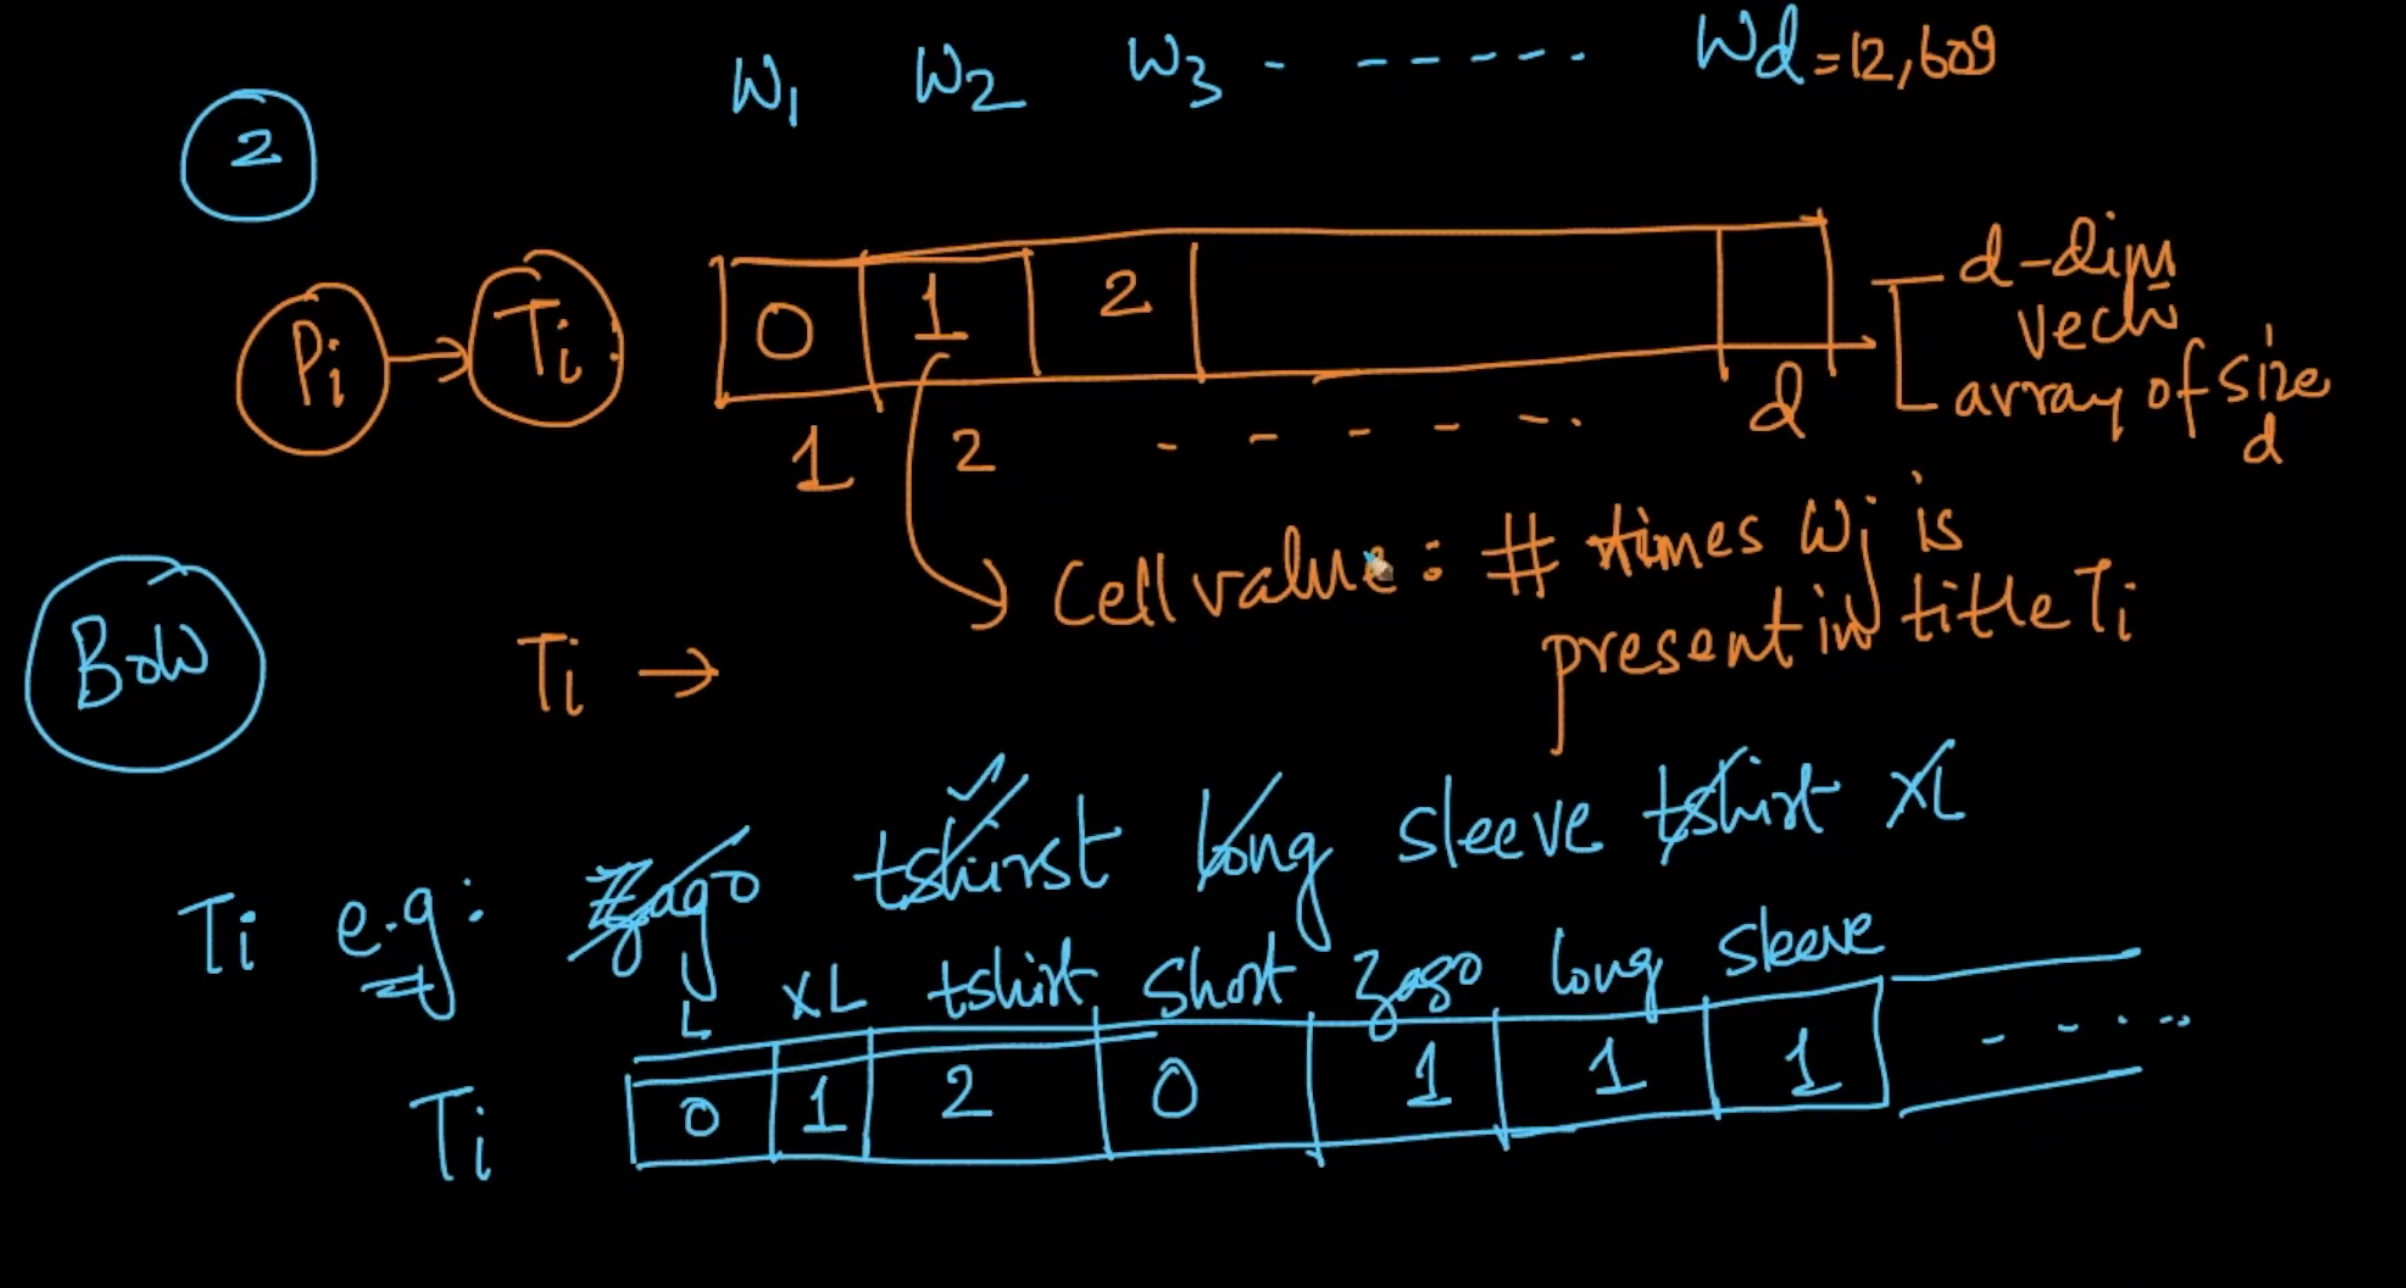 W1 W2 W3 - - - - - - . Wd = 12,609
2
Pi → Ti : 0 1 2
d-dim
vector
array of size
d
1 2 - - - - - . d
Cell value : # times Wj is
present in title Ti
BoW
Ti →
Ti e.g: Zago tshirst long sleeve tshirt XL
L XL tshirt short zago long sleeve
Ti 0 1 2 0 1 1 1 - - . . .